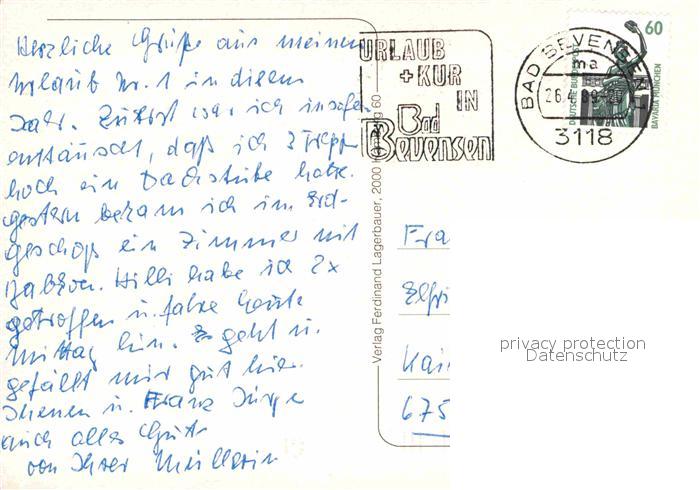 Herzliche Grüße aus meinem
Urlaub Nr. 1 in diesem
Jahr. Zuerst war ich insofern
enttäuscht, daß ich 2 Trepp.
hoch ein Dachstube habe.
gestern bekam ich im Erd-
geschoß ein Zimmer mit
Balkon. Hilli habe ich 2x
getroffen u. fahre heute
Mittag hin. Es geht u.
gefällt mir gut hier.
Ihenen u. Franz Jürge
auch alles Gute
von Ihrer
URLAUB
+ KUR
IN
Bad
Bevensen
BAD BEVENSEN
ma
26
89
3118
60
DEUTSCHE BUNDESPOST
BAVARIA MÜNCHEN
Verlag Ferdinand Lagerbauer, 2000 Hamburg 60
Fra
Elfri
Kai
675
privacy protection
Datenschutz